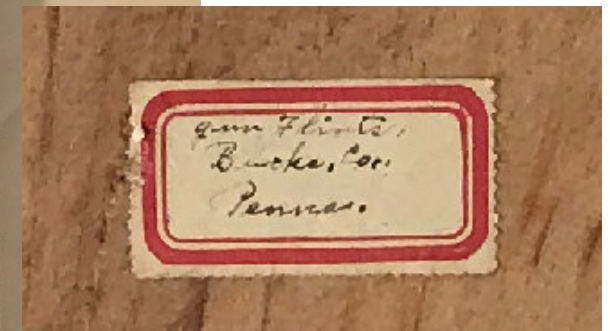 gun Flints,
Bucks, Co.,
Penna.